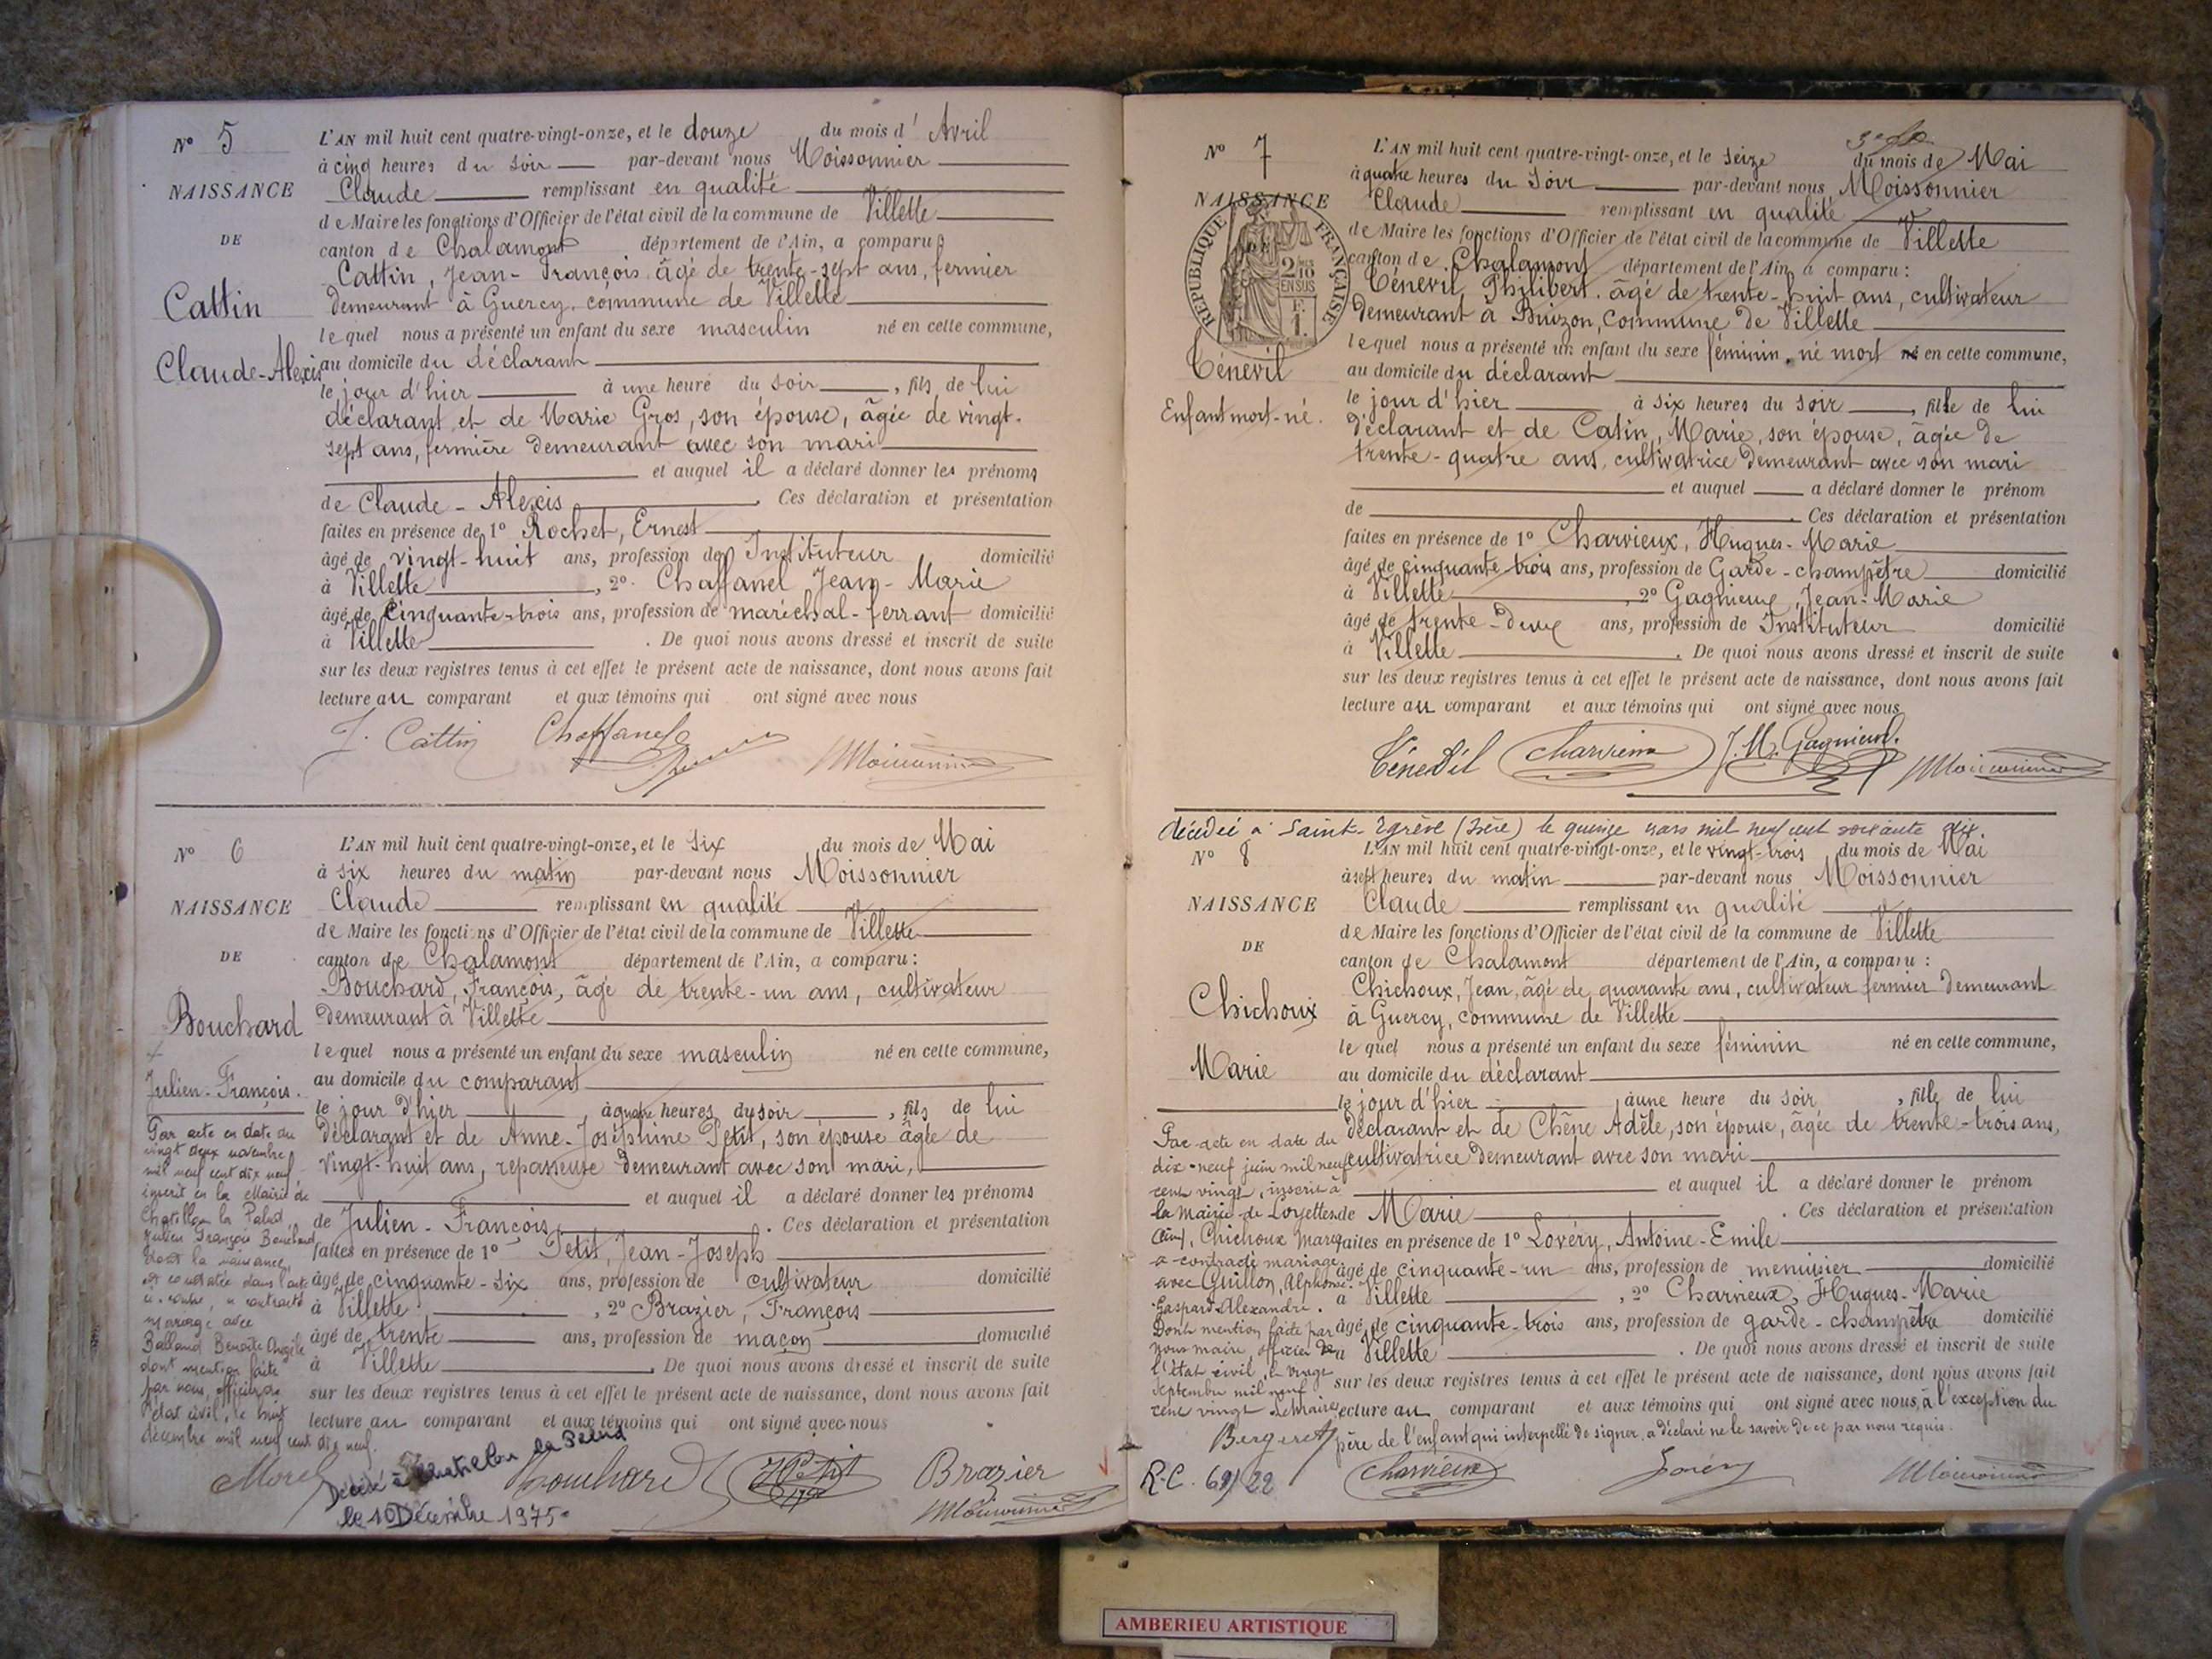 N° 5
NAISSANCE
DE
Cattin
Claude-Alexis
L'AN mil huit cent quatre-vingt-onze, et le douze du mois d'Avril
à cinq heures du soir par-devant nous Moissonnier
Claude remplissant en qualité
de Maire les fonctions d'Officier de l'état civil de la commune de Villette
canton de Chalamont département de l'Ain, a comparu
Cattin, Jean-François âgé de trente-sept ans, fermier
demeurant à Guercy, commune de Villette
lequel nous a présenté un enfant du sexe masculin né en cette commune,
au domicile du déclarant
le jour d'hier à une heure du soir, fils de lui
déclarant et de Marie Gros, son épouse, âgée de vingt-
sept ans, fermière demeurant avec son mari
et auquel il a déclaré donner les prénoms
de Claude-Alexis. Ces déclaration et présentation
faites en présence de 1° Rochet, Ernest
âgé de vingt-huit ans, profession de Instituteur domicilié
à Villette, 2° Chaffanel Jean-Marie
âgé de cinquante-trois ans, profession de maréchal-ferrant domicilié
à Villette. De quoi nous avons dressé et inscrit de suite
sur les deux registres tenus à cet effet le présent acte de naissance, dont nous avons fait
lecture au comparant et aux témoins qui ont signé avec nous
J. Cattin Chaffanel Moissonnier
N° 6
NAISSANCE
DE
Bouchard
Julien-François.
L'AN mil huit cent quatre-vingt-onze, et le six du mois de Mai
à six heures du matin par-devant nous Moissonnier
Claude remplissant en qualité
de Maire les fonctions d'Officier de l'état civil de la commune de Villette
canton de Chalamont département de l'Ain, a comparu :
Bouchard, François, âgé de trente-un ans, cultivateur
demeurant à Villette
lequel nous a présenté un enfant du sexe masculin né en cette commune,
au domicile du comparant
le jour d'hier, à quatre heures du soir, fils de lui
déclarant et de Anne-Joséphine Petit, son épouse âgée de
vingt-huit ans, repasseuse demeurant avec son mari,
et auquel il a déclaré donner les prénoms
de Julien-François. Ces déclaration et présentation
faites en présence de 1° Petit, Jean-Joseph
âgé de cinquante-six ans, profession de cultivateur domicilié
à Villette, 2° Brazier, François
âgé de trente ans, profession de maçon domicilié
à Villette. De quoi nous avons dressé et inscrit de suite
sur les deux registres tenus à cet effet le présent acte de naissance, dont nous avons fait
lecture au comparant et aux témoins qui ont signé avec nous
Par acte en date du
vingt deux novembre
mil neuf cent dix neuf,
inscrit en la Mairie de
Chatillon la Palud,
Julien François Bouchard
dont la naissance
est constatée dans l'acte
ci-contre, a contracté
mariage avec
Balland Benoîte Angèle
dont mention faite
par nous, officier de
l'état civil, le huit
décembre mil neuf cent dix neuf.
Morel
Décédé à Chatillon la Palud
le 10 Décembre 1975
Bouchard J Petit Brazier
Moissonnier
N° 7
NAISSANCE
RÉPUBLIQUE FRANÇAISE
2/10
EN SUS
F.
1.
Ténevil
Enfant mort-né.
L'AN mil huit cent quatre-vingt-onze, et le seize du mois de Mai
à quatre heures du soir par-devant nous Moissonnier
Claude remplissant en qualité
de Maire les fonctions d'Officier de l'état civil de la commune de Villette
canton de Chalamont département de l'Ain, a comparu :
Ténevil Philibert, âgé de trente-huit ans, cultivateur
demeurant à Buizon, commune de Villette
lequel nous a présenté un enfant du sexe féminin, né mort né en cette commune,
au domicile du déclarant
le jour d'hier à six heures du soir, fille de lui
déclarant et de Catin, Marie, son épouse, âgée de
trente-quatre ans, cultivatrice demeurant avec son mari
et auquel a déclaré donner le prénom
de. Ces déclaration et présentation
faites en présence de 1° Charvieux, Hugues-Marie
âgé de cinquante-trois ans, profession de Garde-champêtre domicilié
à Villette, 2° Gagnieux, Jean-Marie
âgé de trente-deux ans, profession de Instituteur domicilié
à Villette. De quoi nous avons dressé et inscrit de suite
sur les deux registres tenus à cet effet le présent acte de naissance, dont nous avons fait
lecture au comparant et aux témoins qui ont signé avec nous
Ténevil Charvieux J. M. Gagnieux. Moissonnier
décédée à Saint-Egrève (Isère) le quinze mars mil neuf cent soixante dix.
N° 8
NAISSANCE
DE
Chichoux
Marie
L'AN mil huit cent quatre-vingt-onze, et le vingt-trois du mois de Mai
à sept heures du matin par-devant nous Moissonnier
Claude remplissant en qualité
de Maire les fonctions d'Officier de l'état civil de la commune de Villette
canton de Chalamont département de l'Ain, a comparu :
Chichoux, Jean, âgé de quarante ans, cultivateur fermier demeurant
à Guercy, commune de Villette
lequel nous a présenté un enfant du sexe féminin né en cette commune,
au domicile du déclarant
le jour d'hier à une heure du soir, fille de lui
déclarant et de Chêne Adèle, son épouse, âgée de trente-trois ans,
cultivatrice demeurant avec son mari
et auquel il a déclaré donner le prénom
de Marie. Ces déclaration et présentation
faites en présence de 1° Lovéry, Antoine-Emile
âgé de cinquante-un ans, profession de menuisier domicilié
à Villette, 2° Charvieux, Hugues-Marie
âgé de cinquante-trois ans, profession de garde-champêtre domicilié
à Villette. De quoi nous avons dressé et inscrit de suite
sur les deux registres tenus à cet effet le présent acte de naissance, dont nous avons fait
lecture au comparant et aux témoins qui ont signé avec nous, à l'exception du
père de l'enfant qui interpellé de signer, a déclaré ne le savoir de ce par nous requis.
Par acte en date du
dix-neuf juin mil neuf
cent vingt, inscrit à
la mairie de Loyettes
(Ain), Chichoux Marie
a contracté mariage
avec Guillon, Alphonse
Gaspard Alexandre.
Dont mention faite par
nous maire, officier de
l'état civil, le vingt
septembre mil neuf
cent vingt Le Maire
Bergeret
R.C. 69/22
Charvieux Lovéry Moissonnier
AMBERIEU ARTISTIQUE